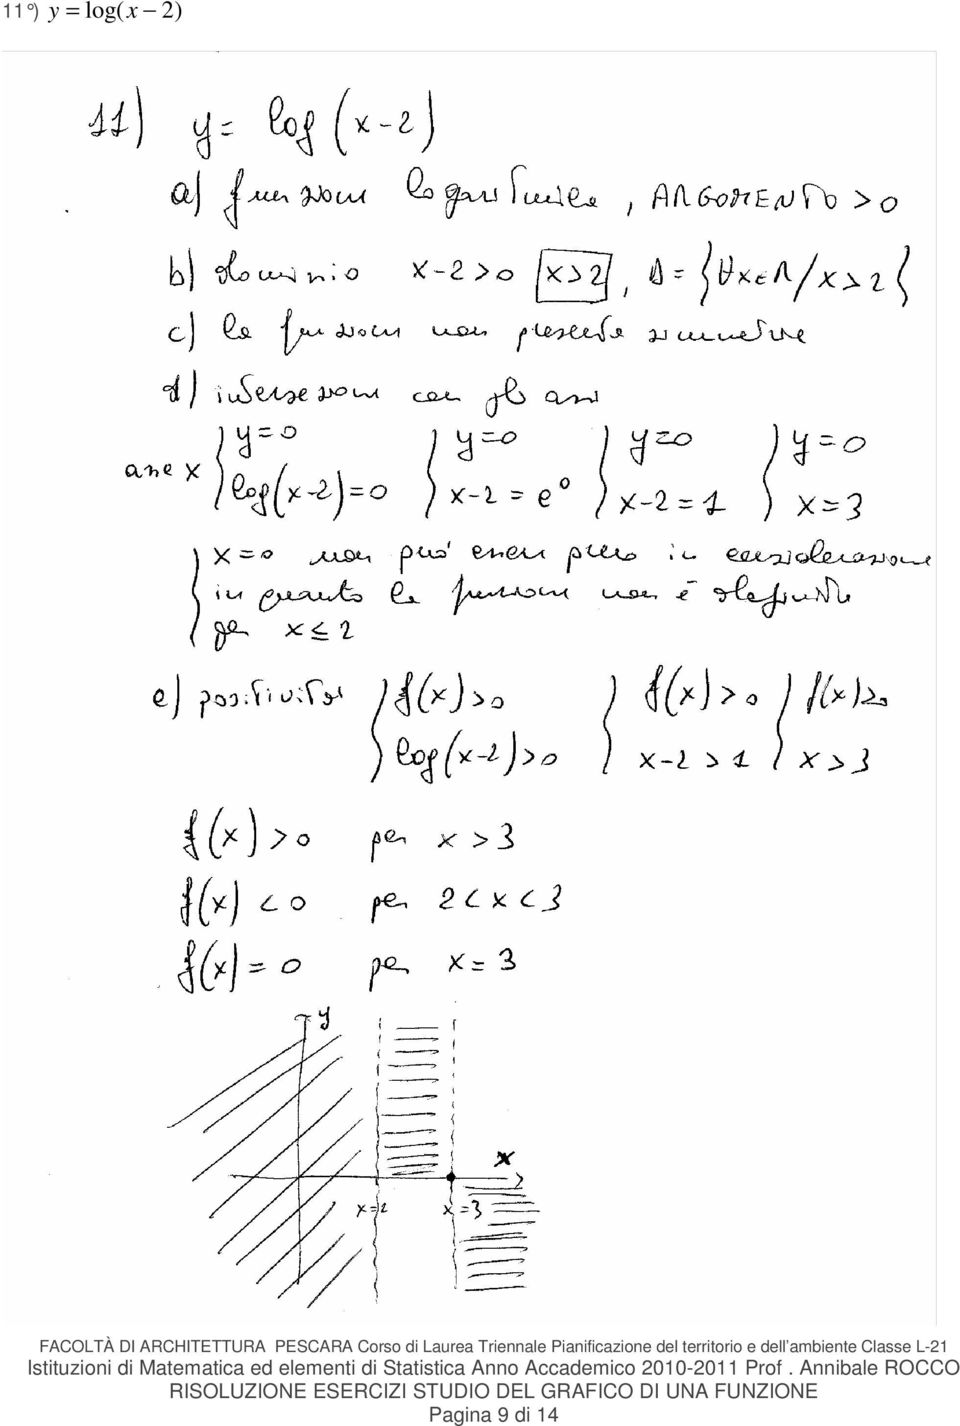 11°) y = log(x − 2)
11) y = log (x-2)
a) funzione logaritmica, ARGOMENTO > 0
b) dominio x-2>0 x>2, D = {∀x∈R/x>2}
c) la funzione non presenta simmetrie
d) intersezioni con gli assi
asse x { y=0 { y=0 { y=0 { y=0
{ log(x-2)=0 { x-2 = e⁰ { x-2=1 { x=3
{ x=0 non può essere preso in considerazione
in quanto la funzione non è definita
per x≤2
e) positività { f(x)>0 { f(x)>0 { f(x)>0
{ log(x-2)>0 { x-2>1 { x>3
f(x)>0 per x>3
f(x)<0 per 2<x<3
f(x)=0 per x=3
y
x
x=2 x=3
FACOLTÀ DI ARCHITETTURA PESCARA Corso di Laurea Triennale Pianificazione del territorio e dell'ambiente Classe L-21
Istituzioni di Matematica ed elementi di Statistica Anno Accademico 2010-2011 Prof. Annibale ROCCO
RISOLUZIONE ESERCIZI STUDIO DEL GRAFICO DI UNA FUNZIONE
Pagina 9 di 14